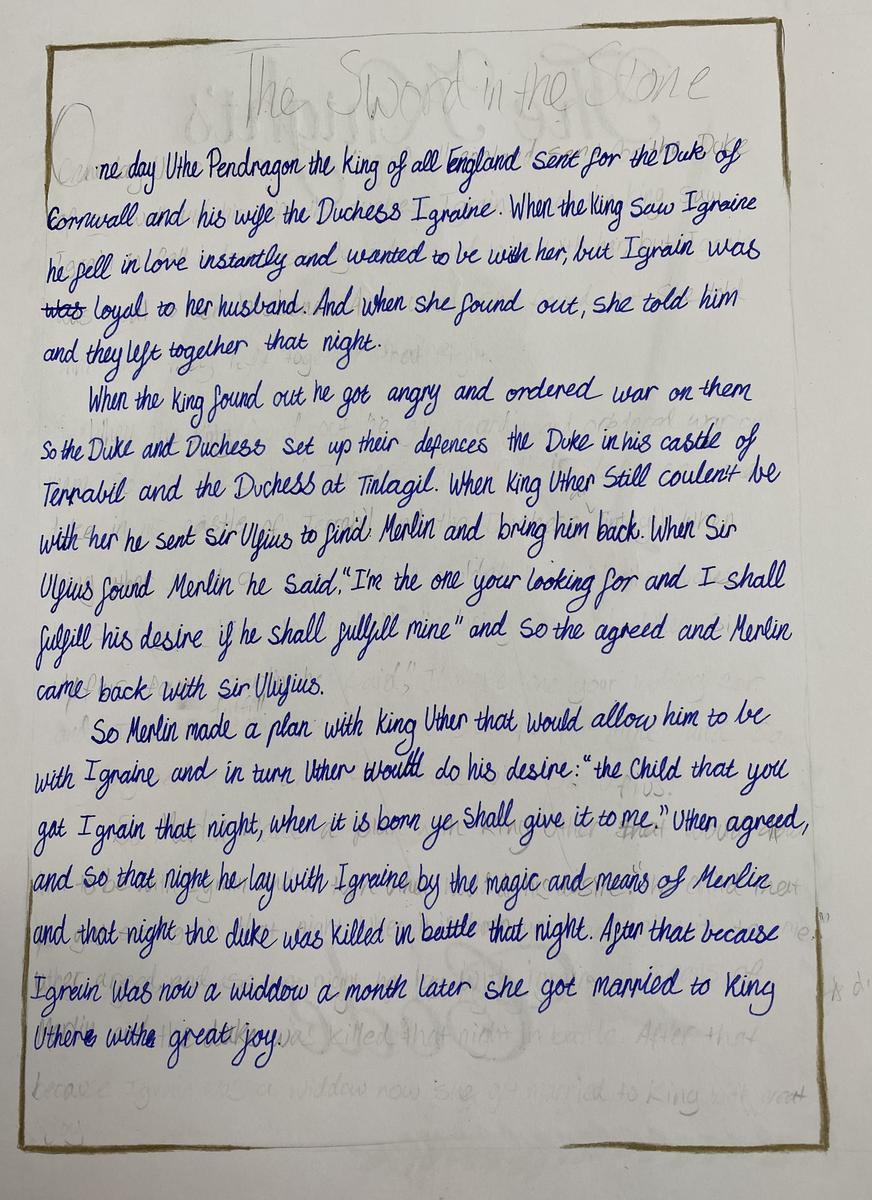 The Sword in the Stone
One day Uthe Pendragon the King of all England sent for the Duke of
Cornwall and his wife the Duchess Igraine. When the King saw Igraine
he fell in love instantly and wanted to be with her, but Igrain was
was loyal to her husband. And when she found out, she told him
and they left together that night.
When the King found out he got angry and ordered war on them
so the Duke and Duchess set up their defences the Duke in his castle of
Terrabil and the Duchess at Tintagil. When King Uther still coulent be
with her he sent Sir Ulfius to find Merlin and bring him back. When Sir
Ulfius found Merlin he said, "I'm the one your looking for and I shall
fulfill his desire if he shall fullfill mine" and so the agreed and Merlin
came back with Sir Ulufius.
So Merlin made a plan with King Uther that would allow him to be
with Igraine and in turn Uther would do his desire: "the child that you
got Igrain that night, when it is born ye shall give it to me." Uther agreed,
and so that night he lay with Igraine by the magic and means of Merlin
and that night the duke was killed in battle that night. After that because
Igrain was now a widdow a month later she got married to King
Uthere withe great joy.